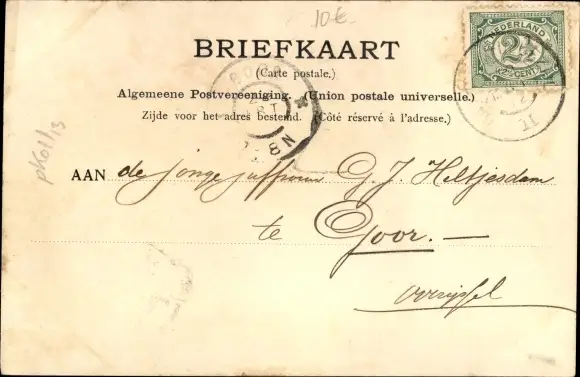 10.-€
NEDERLAND
2½
CENT
BRIEFKAART
(Carte postale.)
Algemeene Postvereeniging. (Union postale universelle.)
Zijde voor het adres bestemd. (Côté réservé à l'adresse.)
GOOR
8 N
pk01/13
AAN de jongejuffrouw G. J. Heltjesdam
te Goor. —
Overijssel